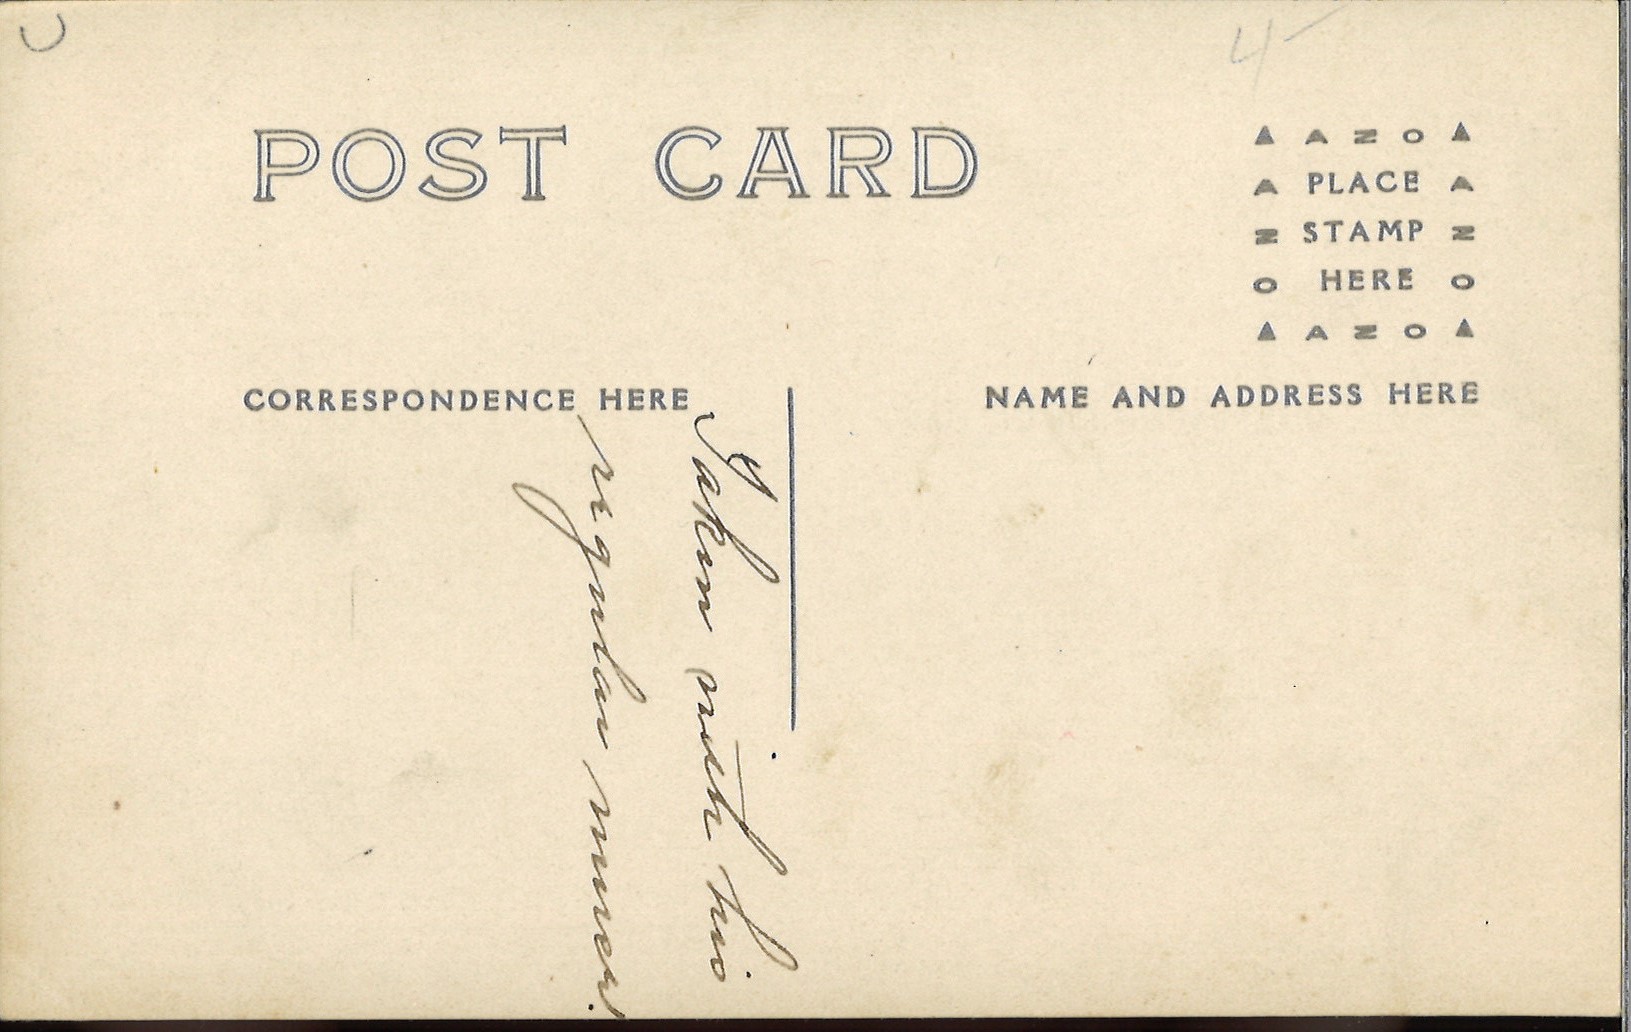 4
POST CARD
▲ A Z O ▲
A PLACE A
Z STAMP Z
O HERE O
▲ A Z O ▲
CORRESPONDENCE HERE
NAME AND ADDRESS HERE
Taken with his
regular nurse.